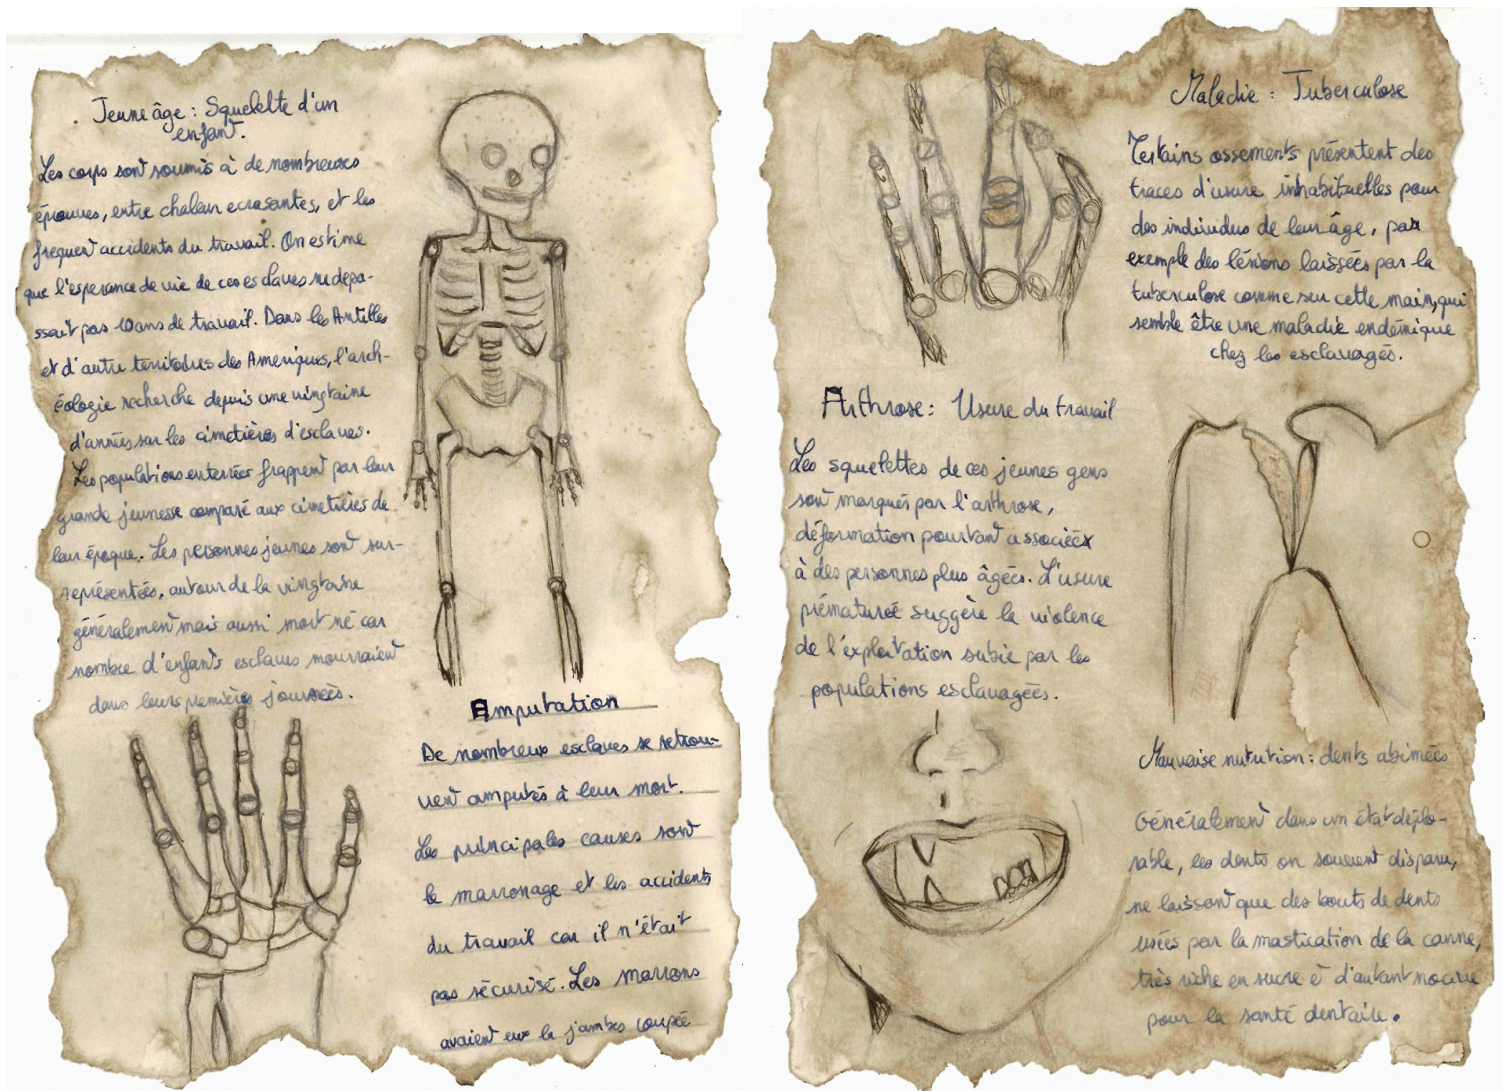 Jeune âge : Squelette d'un
enfant.
Les corps sont soumis à de nombreuses
épreuves, entre chaleur ecrasantes, et les
frequent accidents du travail. On estime
que l'esperance de vie de ces esclaves ne depa-
ssait pas 10 ans de travail. Dans les Antilles
et d'autre territoires des Ameriques, l'arch-
éologie recherche depuis une vingtaine
d'années sur les cimetières d'esclaves.
Les populations enterrées frappent par leur
grande jeunesse comparé aux cimetières de
leur époque. Les personnes jeunes sont sur-
représentées, autour de la vingtaine
généralement mais aussi mort né car
nombre d'enfants esclaves mourraient
dans leurs premières journées.
Amputation
De nombreux esclaves se retrou-
vent amputés à leur mort.
Les principales causes sont
le marronage et les accidents
du travail car il n'était
pas sécurisé. Les marrons
avaient eux la jambes coupée
Maladie : Tuberculose
Certains ossements présentent des
traces d'usure inhabituelles pour
des individus de leur âge, par
exemple des lésions laissées par la
tuberculose comme sur cette main, qui
semble être une maladie endémique
chez les esclavagés.
Arthrose : Usure du travail
Les squelettes de ces jeunes gens
sont marqués par l'arthrose,
déformation pourtant associéex
à des personnes plus âgées. L'usure
prématureé suggère la violence
de l'exploitation subie par les
populations esclavageés.
Mauvaise nutrution : dents abimées
Généralement dans un état déplo-
rable, les dents on souvent disparu,
ne laissant que des bouts de dents
usées par la mastication de la canne,
très riche en sucre è d'autant nocive
pour la santé dentaire.